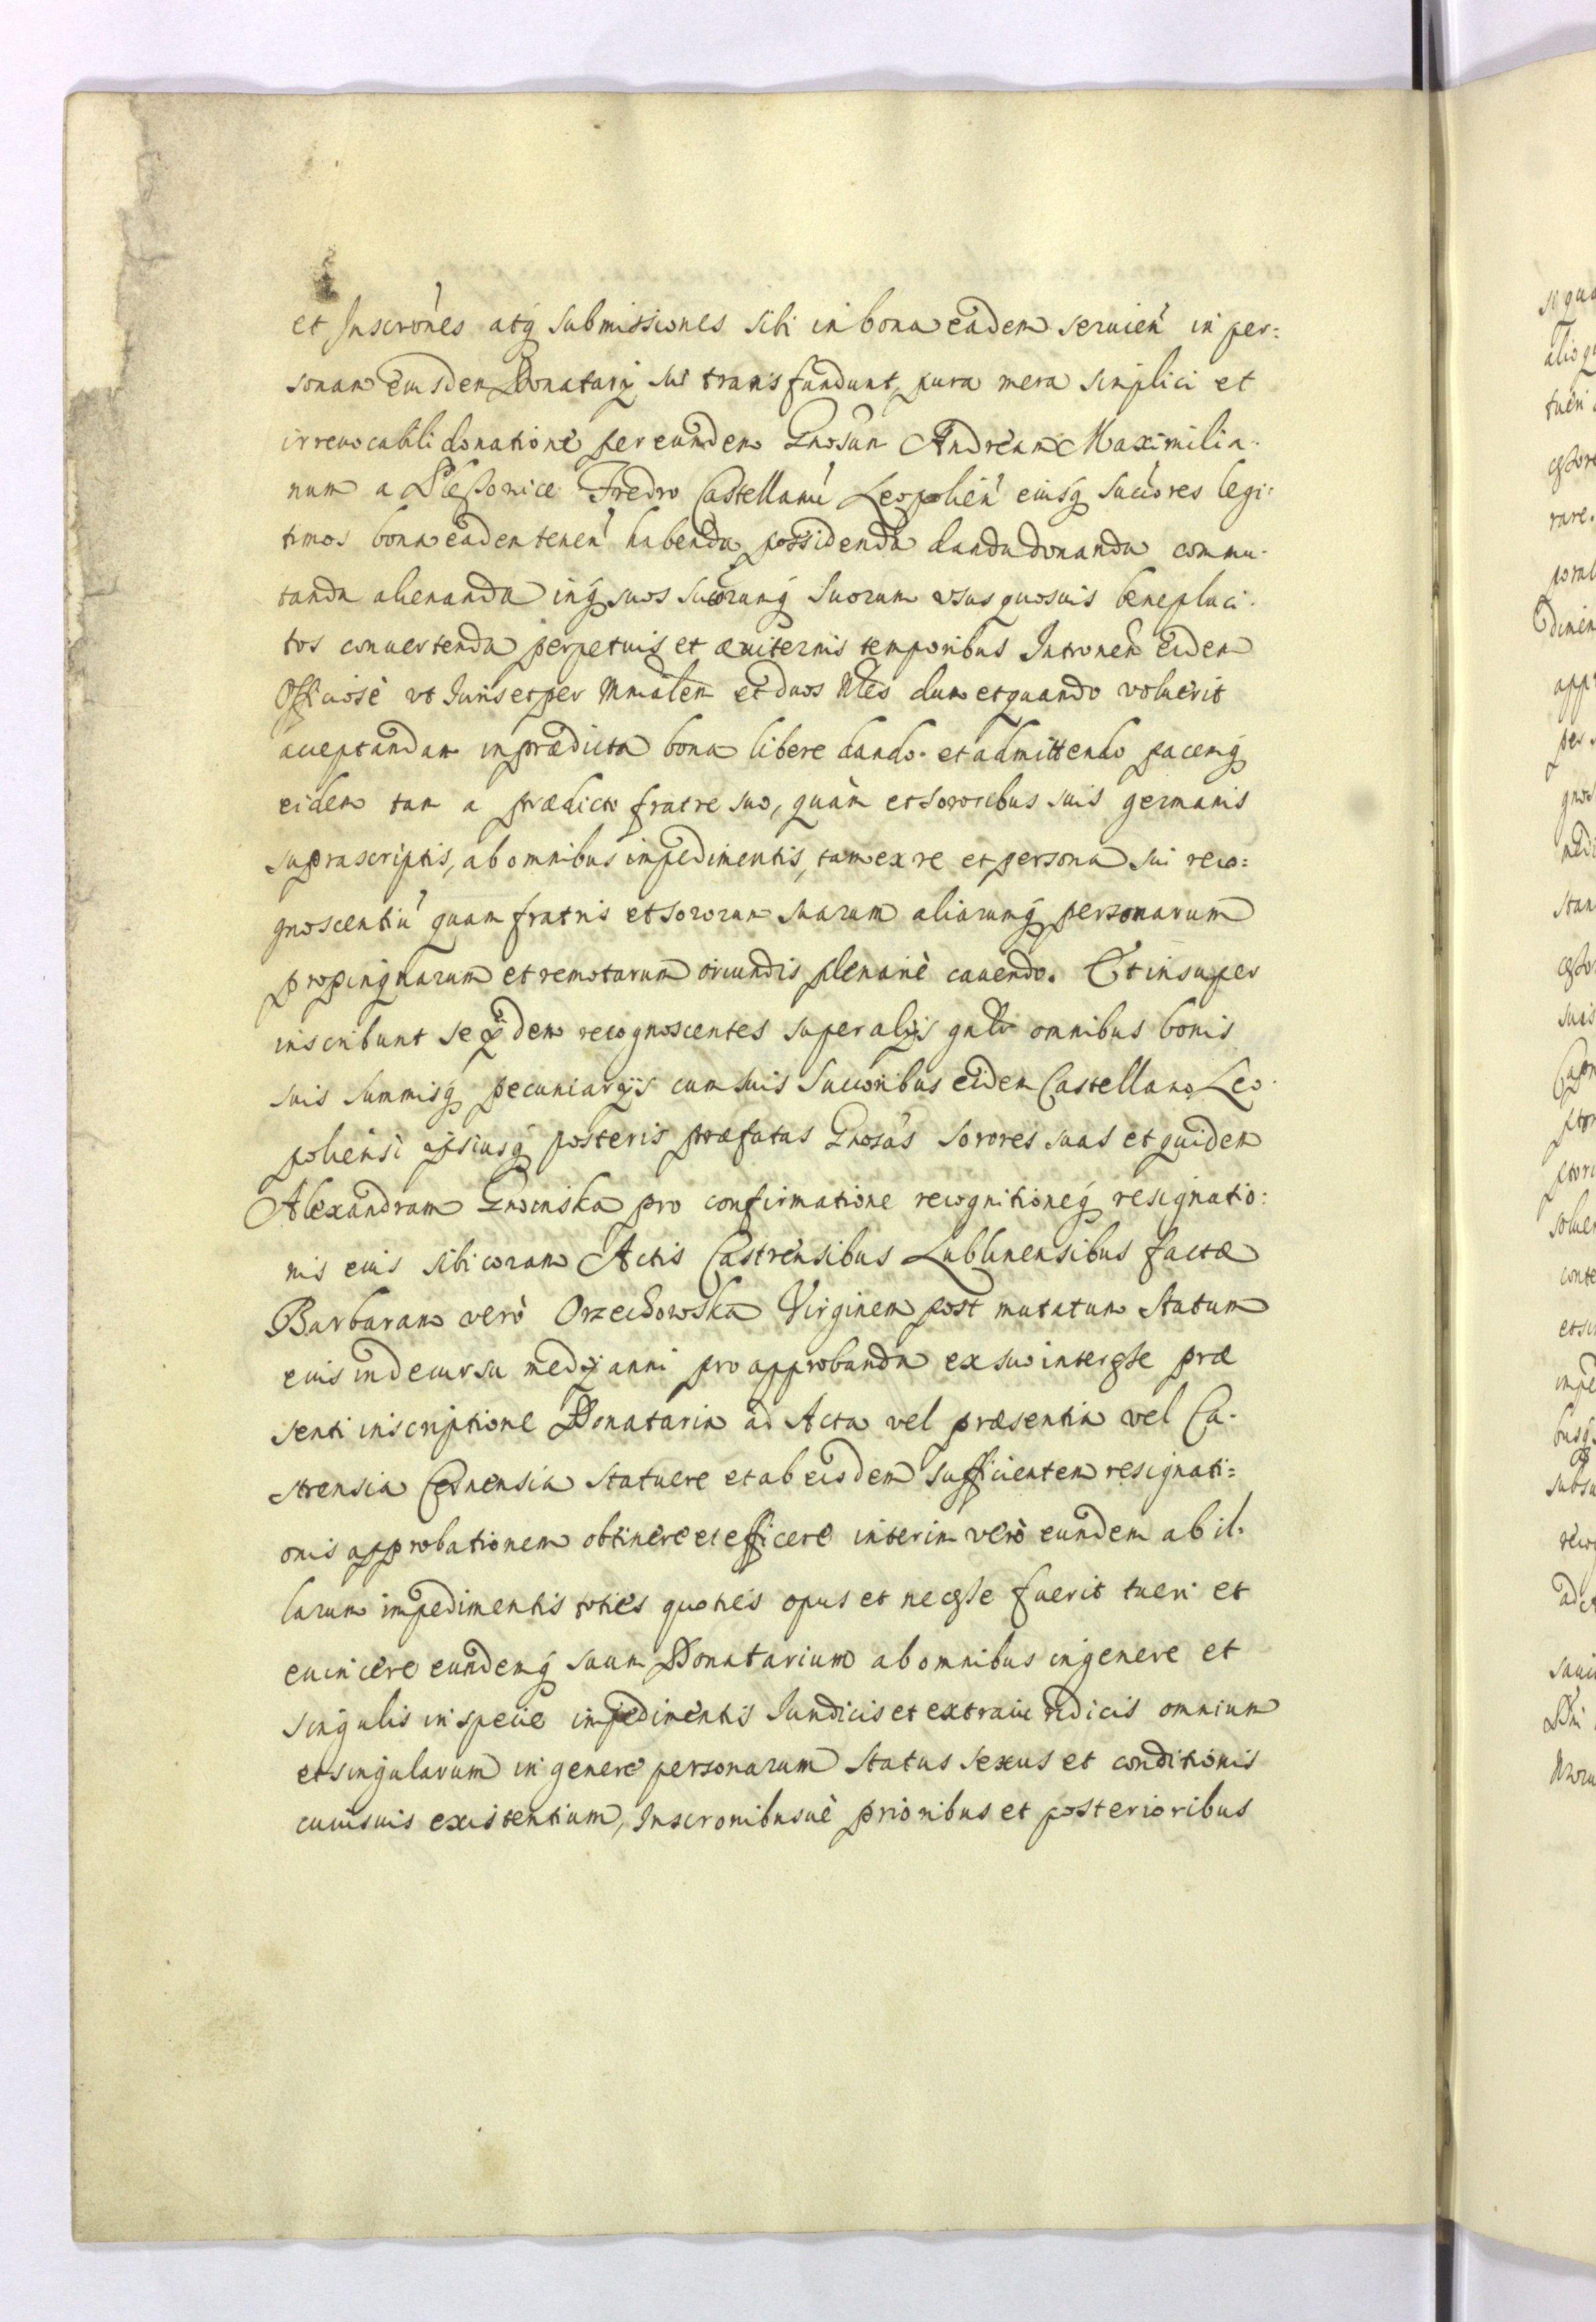 et Inscrónes atq́ submissiones sibi in bona eadem seruień in per:
sonam eiusdem Donatarÿ sui transfundunt, pura mera simplici et
irreuocabili donatione per eundem Gnosum Andream Maximilia-
num a Pleszowice Fredro Castellanú Leopolień eiusq́ succores legi:
timos bona eadem tenen̄ habenda possidenda danda donanda commu-
tanda alienanda inq́ suos succorumq́ suorum vsus quosuis beneplaci-
tos conuertenda perpetuis et æuiternis temporibus Intronem̄ eidem
Officiosè vt Iuris et per Mnialem et duos Nles dum et quando voluerit
acceptandam in prædicta bona libere dando. et admittendo pacemq́
eidem tam a prædicto fratre suo, quàm et sororibus suis germanis
suprascriptis, ab omnibus impedimentis, tam ex re et persona sui reco:
gnoscentiú quam fratris et sororum suarum aliarumq́ personarum
propinquarum et remotarum oriundis plenariè cauendo. Et insuper
inscribunt se ÿdem recognoscentes super alÿs gnlr omnibus bonis
suis summisq́ pecuniarÿs cum suis succoribus eidem Castellano Leo-
poliensi ipsiusq́ posteris præfatas Gnosas sorores suas et quidem
Alexandram Gnoinska pro confirmatione recognitioneq́ resignatio:
nis eius sibi coram Actis Castrensibus Lublinensibus factæ
Barbaram verò Orzechowska Virginem post mutatum statum
eius in decursu medÿ anni pro approbanda ex suo interesse præ
senti inscriptione Donataria ad Acta vel præsentia vel Ca-
strensia statuere et ab eisdem sufficientem resignati=
onis approbationem obtinere et efficere interim verò eundem ab il-
larum impedimentis toties quoties opus et necesse fuerit tueri et
euincere eundemq́ suum Donatarium ab omnibus in genere et
singulis in specie impedimentis Iuridicis et extraiuridicis omnium
et singularum in genere personarum status sexus et conditionis
cuiusuis existentium, Inscronibusuè prioribus et posterioribus